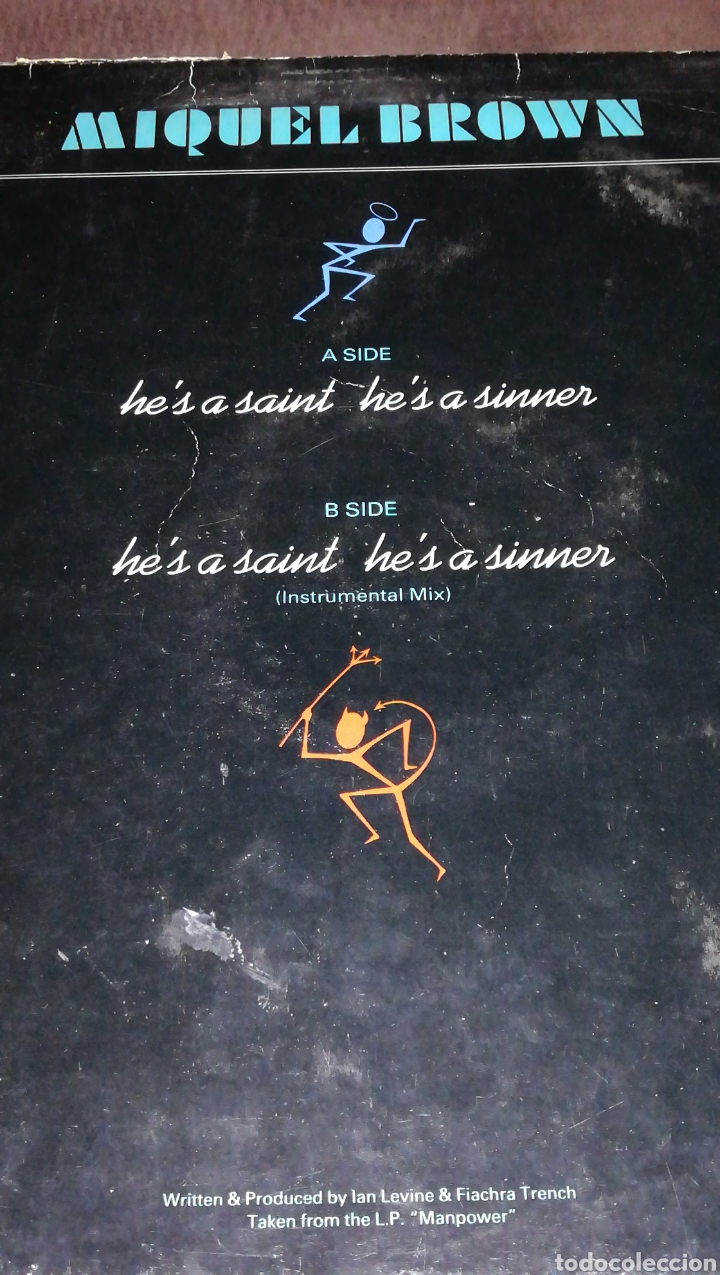 MIQUEL BROWN
A SIDE
he's a saint he's a sinner
B SIDE
he's a saint he's a sinner
(Instrumental Mix)
Written & Produced by Ian Levine & Fiachra Trench
Taken from the L.P. "Manpower"
todocoleccion